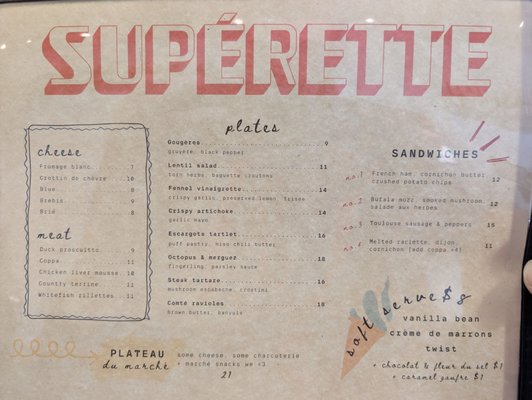 SUPÉRETTE
cheese
Fromage blanc 7
Crottin de chèvre 10
Blue 8
Brebis 9
Brie 8
meat
Duck proscuitto 9
Coppa 11
Chicken liver mousse 10
Country terrine 11
Whitefish rillettes 11
plates
Gougères 9
gruyère, black pepper
Lentil salad 11
torn herbs, baguette croutons
Fennel vinaigrette 14
crispy garlic, preserved lemon, frisée
Crispy artichoke 14
garlic mayo
Escargots tartlet 16
puff pastry, miso chili butter
Octopus & merguez 18
fingerling, parsley sauce
Steak tartare 16
mushroom escabeche, crostini
Comté ravioles 18
brown butter, banyuls
SANDWICHES
no.1 French ham, cornichon butter, 12
crushed potato chips
no.2 Bufala mozz, smoked mushroom, 12
salade aux herbes
no.3 Toulouse sausage & peppers 15
no.4 Melted raclette, dijon, 11
cornichon [add coppa +4]
soft serve $8
vanilla bean
crème de marrons
twist
+ chocolat & fleur du sel $1
+ caramel gaufre $1
PLATEAU
du marché
some cheese, some charcuterie
+ marché snacks we <3
21